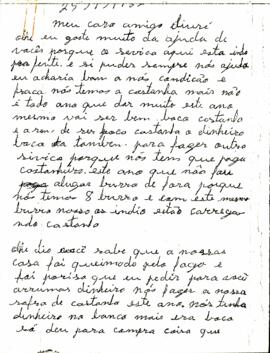 meu caro amigo
olhe eu gosto muito da ajuda de
vocês porque o serviço aqui esta indo
pra frente. e si puder sempre nós ajuda
eu acharia bam a nós condição e
fraca nós temos a castanha mais não
é todo ano que dar muito este ano
mesmo vai ser bem boca castanha
e a de ser poco castanha o dinheiro
boca tanben. para fazer outro
sirviça porque nós tem que paga
castanheiro. este ano que não
alugar burro de fora porque
nós temos 8 burro e com este mesmo
burro nosso os indio estão carrega
ndo castanha
olhe tio você sabe que a nossas
casa fai queimado pelo fago e
fai porisso que eu pedir para você
arrumar dinheiro nós fazer a nossa
safra de castanha este ano, nós tinha
dinheiro no banco mais era boca
só deu para compra coisa que